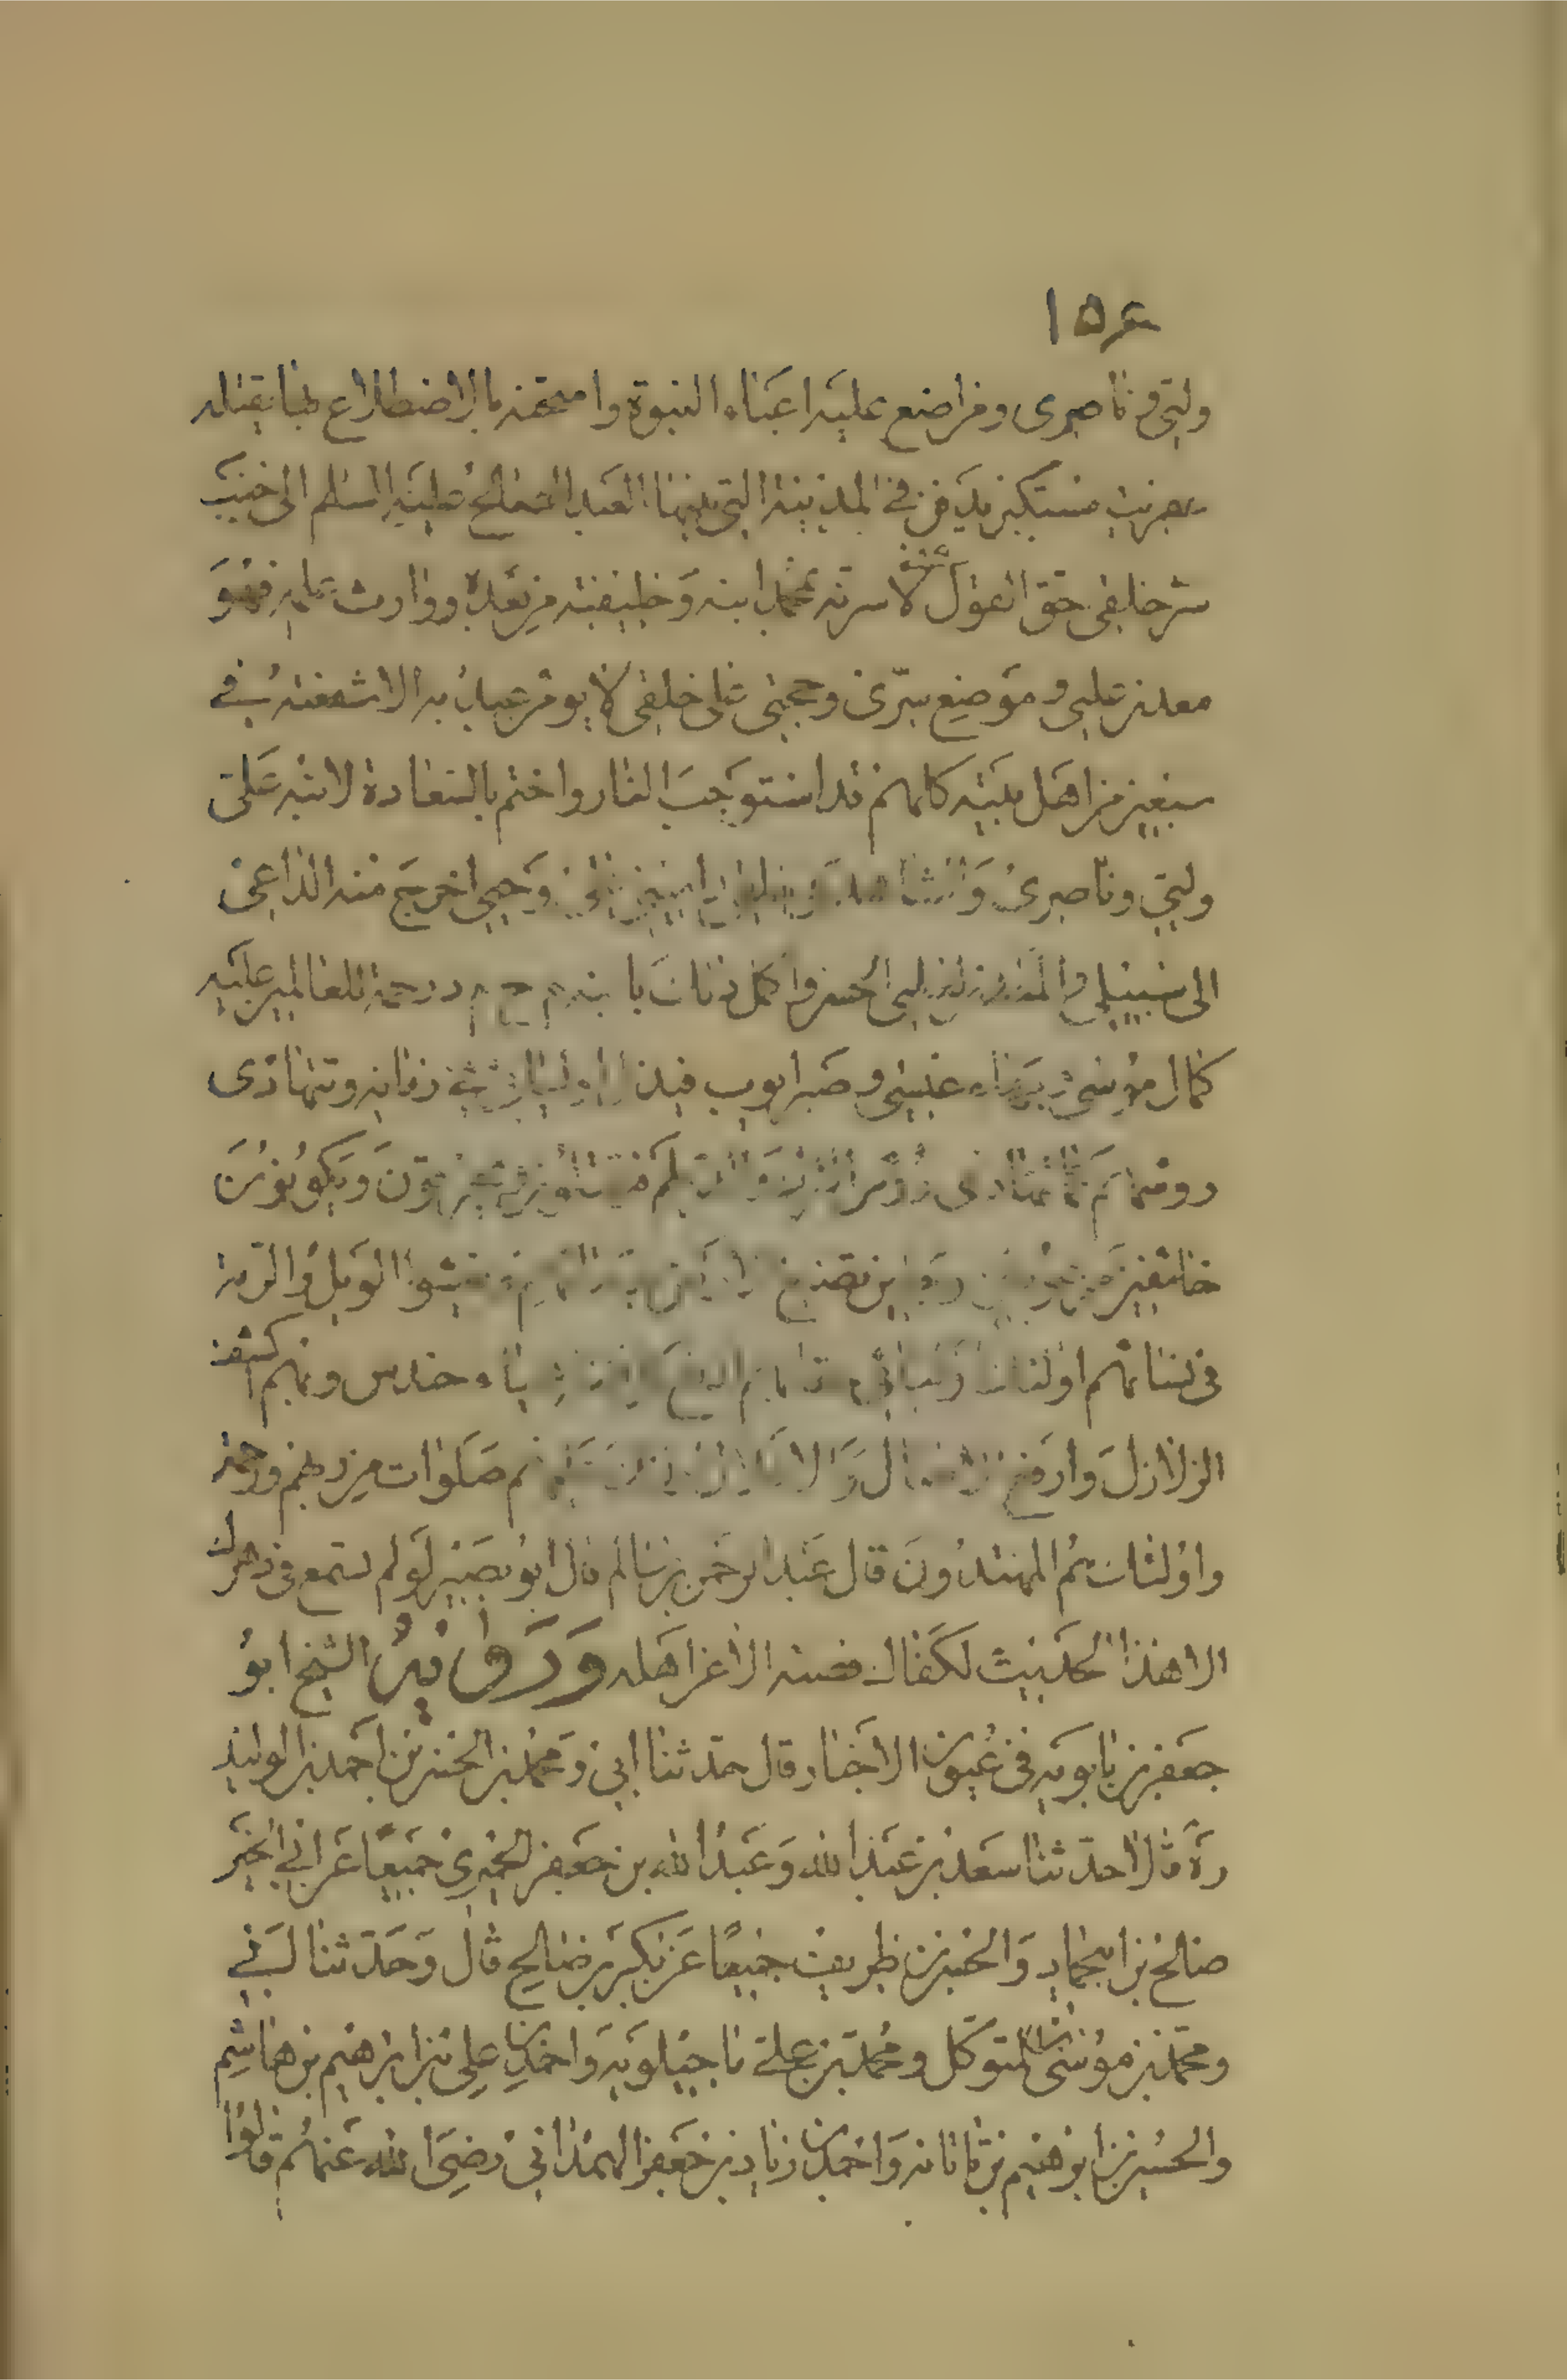 ١٥٤
وليي و ناصري ومن اضع عليه اعباء النبوة وامتحنه بالاضطلاع بها يقتله
عفريت مستكبر يدفن في المدينة التي بناها العبد الصالح عليه السلم الى جنب
شر خلقي حق القول منى لاسرنه بمحمد ابنه وخليفته من بعده ووارث علمه فهو
معدن علمي و موضع سرى وحجتى على خلقى لا يومن عبد به الا شفعته في
سبعين من اهل بيته كلهم قد استوجب النار واختم بالسعادة لابنه على
وليي وناصرى والشاهد في خلقى وامينى على وحيى اخرج منه الداعى
الى سبيلى والخازن لعلمى الحسن واكمل ذلك بابنه م ح م د رحمة للعالمين عليه
كمال موسى وبهاء عيسى وصبر ايوب فيذل اوليائى فى زمانه وتتهادى
روسهم كما تتهادى روس الترك والديلم فيقتلون ويحرقون ويكونون
خائفين مرعوبين وجلين تصبغ الارض بدمائهم ويفشوا الويل والرنة
فى نسائهم اولئك اوليائى حقا بهم ادفع كل فتنة عمياء حندس وبهم اكشف
الزلازل وادفع الاصار والاغلال اولئك عليهم صلوات من ربهم ورحمة
واولئك هم المهتدون قال عبد الرحمن بن سالم قال ابو بصير لو لم تسمع فى دهرك
الا هذا الحديث لكفاك فصنه الا عن اهله ورواه الشيخ ابو
جعفر بن بابويه فى عيون الاخبار قال حدثنا ابى ومحمد بن الحسن بن احمد بن الوليد
ره قالا حدثنا سعد بن عبد الله وعبد الله بن جعفر الحميرى جميعا عن ابى الخير
صالح بن ابى حماد والحسن بن ظريف جميعا عن بكر بن صالح قال وحدثنا ابى
ومحمد بن موسى بن المتوكل ومحمد بن على ماجيلويه واحمد بن على بن ابرهيم بن هاشم
والحسين بن ابرهيم بن ناتانه واحمد بن زياد بن جعفر الهمدانى رضى الله عنهم قالوا